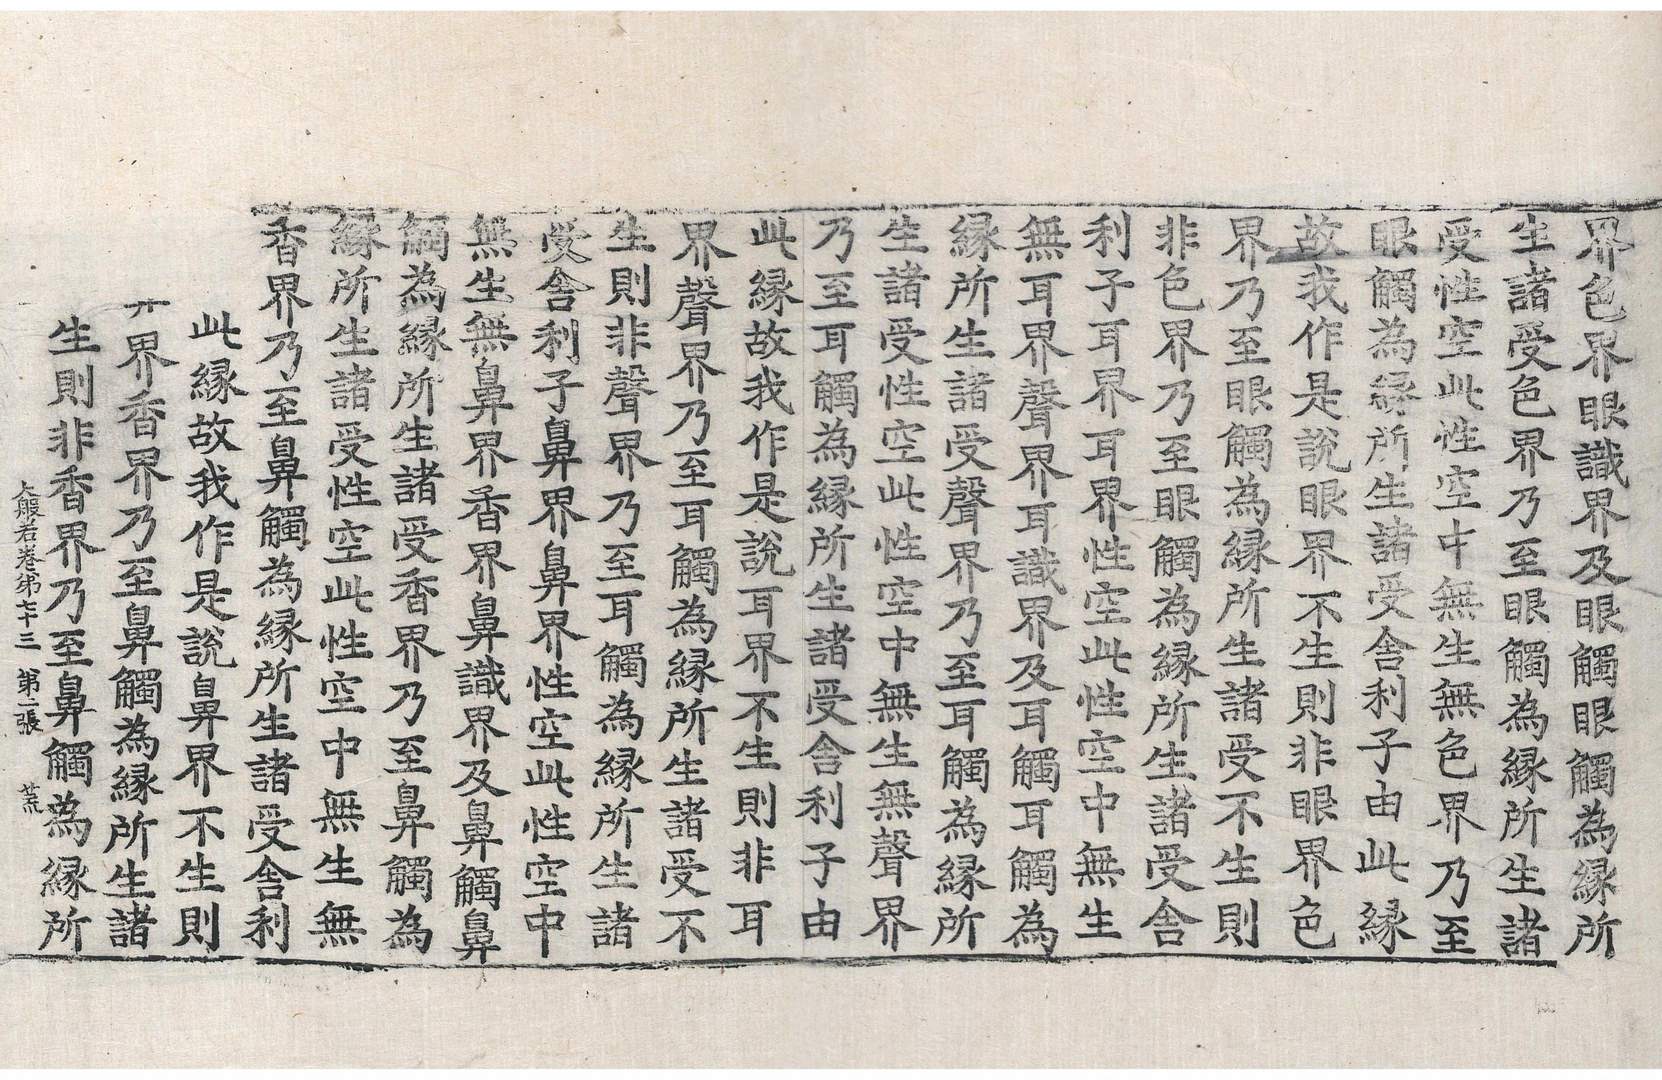 界色界眼識界及眼觸眼觸為縁所
生諸受色界乃至眼觸為縁所生諸
受性空此性空中無生無色界乃至
眼觸為縁所生諸受舍利子由此縁
故我作是說眼界不生則非眼界色
界乃至眼觸為縁所生諸受不生則
非色界乃至眼觸為縁所生諸受舍
利子耳界耳界性空此性空中無生
無耳界聲界耳識界及耳觸耳觸為
縁所生諸受聲界乃至耳觸為縁所
生諸受性空此性空中無生無聲界
乃至耳觸為縁所生諸受舍利子由
此縁故我作是說耳界不生則非耳
界聲界乃至耳觸為縁所生諸受不
生則非聲界乃至耳觸為縁所生諸
受舍利子鼻界鼻界性空此性空中
無生無鼻界香界鼻識界及鼻觸鼻
觸為縁所生諸受香界乃至鼻觸為
縁所生諸受性空此性空中無生無
香界乃至鼻觸為縁所生諸受舍利
此縁故我作是說鼻界不生則
界香界乃至鼻觸為縁所生諸
生則非香界乃至鼻觸為縁所
大般若卷第七十三 第二張 荒